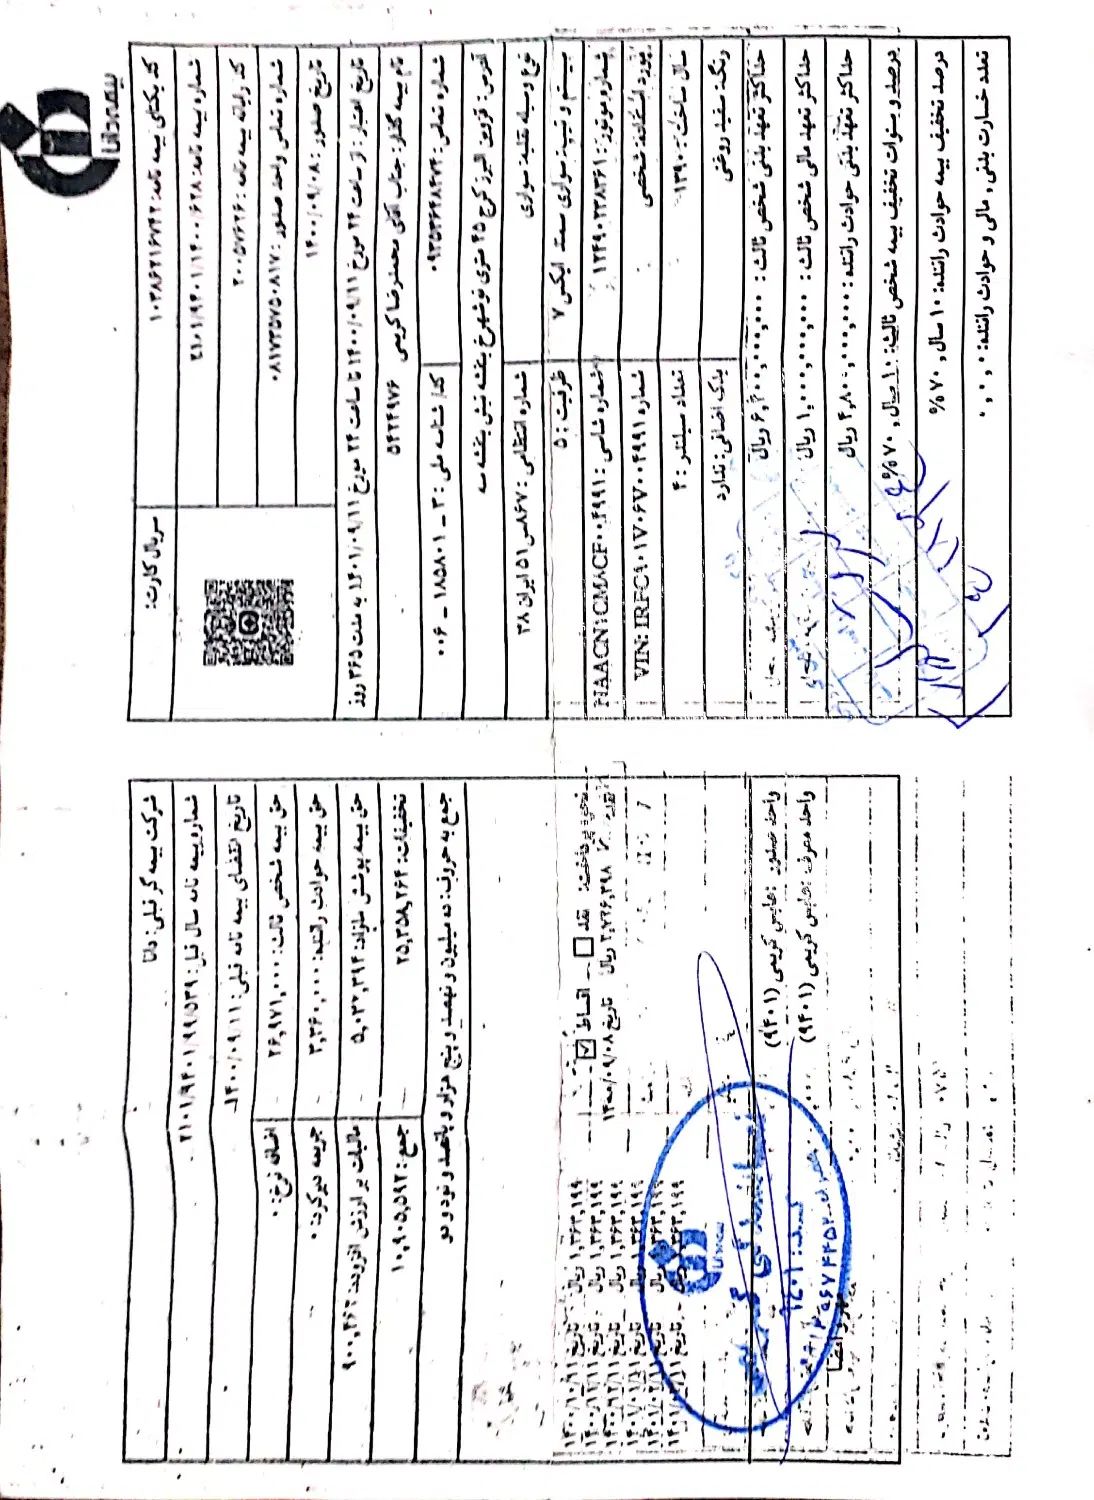 بیمه دانا
کد یکتای بیمه نامه: ۱۰۳۸۶۲۱۶۷۴۲
سریال کارت:
شماره بیمه نامه: ۲۱۰۱/۹۴۰۱/۱۴۰۰/۶۲۸
کد رایانه بیمه نامه: ۲۰۰۵۷۶۲۶
شماره تماس واحد صدور: ۰۸۱۷۳۵۷۵۰۸۱۷
تاریخ صدور: ۱۴۰۰/۰۹/۰۸
تاریخ اعتبار: از ساعت ۲۴ مورخ ۱۴۰۰/۰۹/۱۱ تا ساعت ۲۴ مورخ ۱۴۰۱/۰۹/۱۱ به مدت ۳۶۵ روز
نام بیمه گذار: جناب آقای محمدرضا کریمی ۵۴۲۴۹۷۶
شماره تماس: ۰۹۳۵۳۶۴۸۴۷۴
کد/ شناسه ملی: ۳ _ ۱۸۵۸۰۱ _ ۰۰۶
آدرس: قزوین البرز کرج ۴۵ متری نوشهر خ بنفشه نبش بنفشه سه
نوع وسیله نقلیه: سواری
شماره انتظامی: ۸۶۷س۵۱ ایران ۳۸
سیستم و تیپ: سواری سمند ایکس ۷
ظرفیت: ۵
شماره موتور: ۱۲۴۹۰۲۳۸۳۶۱
شماره شاسی: NAACN۱CMACF۰۰۴۹۹۱
مورد استفاده: شخصی
شماره VIN: IRFC۹۰۱V۰۶V۰۰۴۹۹۱
سال ساخت: ۱۳۹۰
تعداد سیلندر: ۴
رنگ: سفید روغنی
یدک اضافی: ندارد
حداکثر تعهد بدنی شخص ثالث: ۶,۴۰۰,۰۰۰,۰۰۰ ریال
حداکثر تعهد مالی شخص ثالث: ۱,۰۰۰,۰۰۰,۰۰۰ ریال
حداکثر تعهد بدنی حوادث راننده: ۴,۸۰۰,۰۰۰,۰۰۰ ریال
درصد و سنوات تخفیف بیمه شخص ثالث: ۱۰ سال, ۷۰%
درصد تخفیف بیمه حوادث راننده: ۱۰ سال, ۷۰%
تعدد خسارت بدنی و مالی و حوادث راننده: ۰,۰,۰
شرکت بیمه گر قبلی: دانا
شماره بیمه نامه سال قبل: ۲۱۰۱/۹۴۰۱/۹۹/۵۳۹
تاریخ انقضای بیمه نامه قبلی: ۱۴۰۰/۰۹/۱۱
حق بیمه شخص ثالث: ۲۶,۹۷۱,۰۰۰
اضافه نرخ: ۰
حق بیمه حوادث راننده: ۳,۳۶۰,۰۰۰
جریمه دیرکرد: ۰
حق بیمه پوشش مازاد: ۵,۰۳۲,۳۹۴
مالیات بر ارزش افزوده: ۹۰۰,۴۶۲
تخفیفات: ۲۵,۳۵۸,۲۶۴
جمع: ۱۰,۹۰۵,۵۹۲
جمع به حروف: ده میلیون و نهصد و پنج هزار و پانصد و نود و دو
نحوه پرداخت: نقد ☐ - اقساط ☑
۲,۷۲۶,۳۹۸ ریال تاریخ ۱۴۰۰/۰۹/۰۸
۱,۳۶۳,۱۹۹ ریال تاریخ ۱۴۰۰/۱۰/۱۱
۱,۳۶۳,۱۹۹ ریال تاریخ ۱۴۰۰/۱۱/۱۱
۱,۳۶۳,۱۹۹ ریال تاریخ ۱۴۰۰/۱۲/۱۱
۱,۳۶۳,۱۹۹ ریال تاریخ ۱۴۰۱/۰۱/۱۱
۱,۳۶۳,۱۹۹ ریال تاریخ ۱۴۰۱/۰۲/۱۱
۱,۳۶۳,۱۹۹ ریال تاریخ ۱۴۰۱/۰۳/۱۱
واحد صدور: عباس کریمی (۹۴۰۱)
واحد معرف: عباس کریمی (۹۴۰۱)
نمایندگی
کد: ۹۴۰۱
مهر و امضا